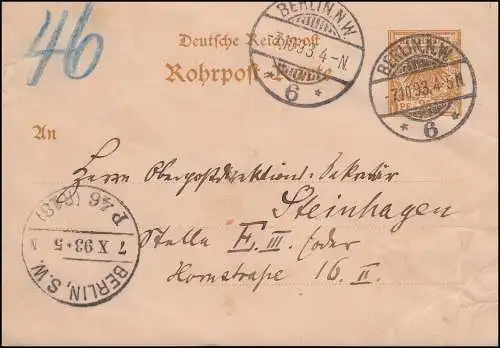 46
Deutsche Reichspost
Rohrpost-Karte
BERLIN, N.W.
7.10.93. 4-N.
* 6 *
BERLIN, N.W.
7.10.93. 4-5N.
* 6 *
An
Herrn Oberpostdirektions-Sekretär
Steinhagen
Stelle E. III. (oder
Hornstraße 16. II.
P.46 (R18)
7 X 93 * 5 N
BERLIN, S.W.